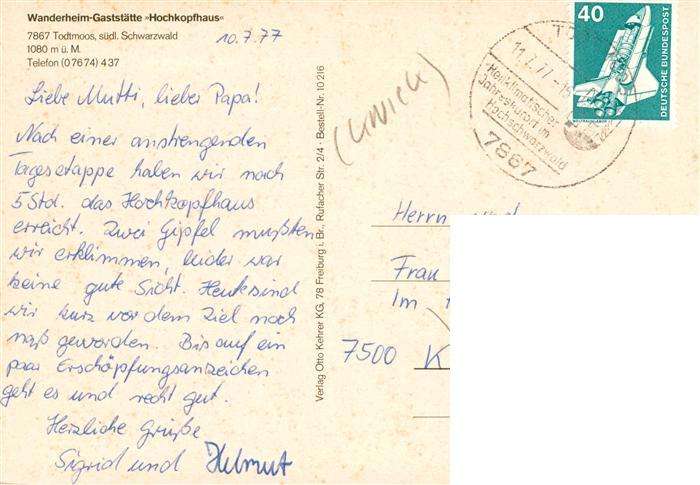 Wanderheim-Gaststätte »Hochkopfhaus«
7867 Todtmoos, südl. Schwarzwald
1080 m ü. M.
Telefon (07674) 437
10.7.77
Liebe Mutti, lieber Papa!
Nach einer anstrengenden
Tagesetappe haben wir nach
5 Std. das Hochkopfhaus
erreicht. Zwei Gipfel mußten
wir erklimmen, leider war
keine gute Sicht. Heute sind
wir kurz vor dem Ziel noch
naß geworden. Bis auf ein
paar Erschöpfungsanzeichen
geht es uns recht gut.
Herzliche Grüße
Sigrid und Helmut
Verlag Otto Kehrer KG, 78 Freiburg i. Br., Rufacher Str. 2/4 · Bestell-Nr. 10 216
40
DEUTSCHE BUNDESPOST
11.7.77
Heilklimatischer
Jahreskurort im
Hochschwarzwald
7867
Herrn
Frau
Im
7500 K